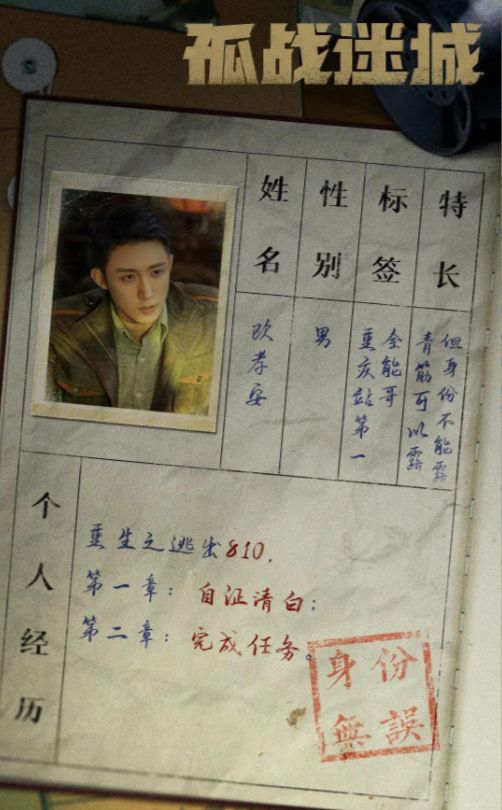 孤战迷城
姓名
欧孝安
性别
男
标签
重庆站第一
全能哥
特长
青筋可以露
但身份不能露
个人经历
重生之逃出810,
第一章：自证清白；
第二章：完成任务。
身份
無誤